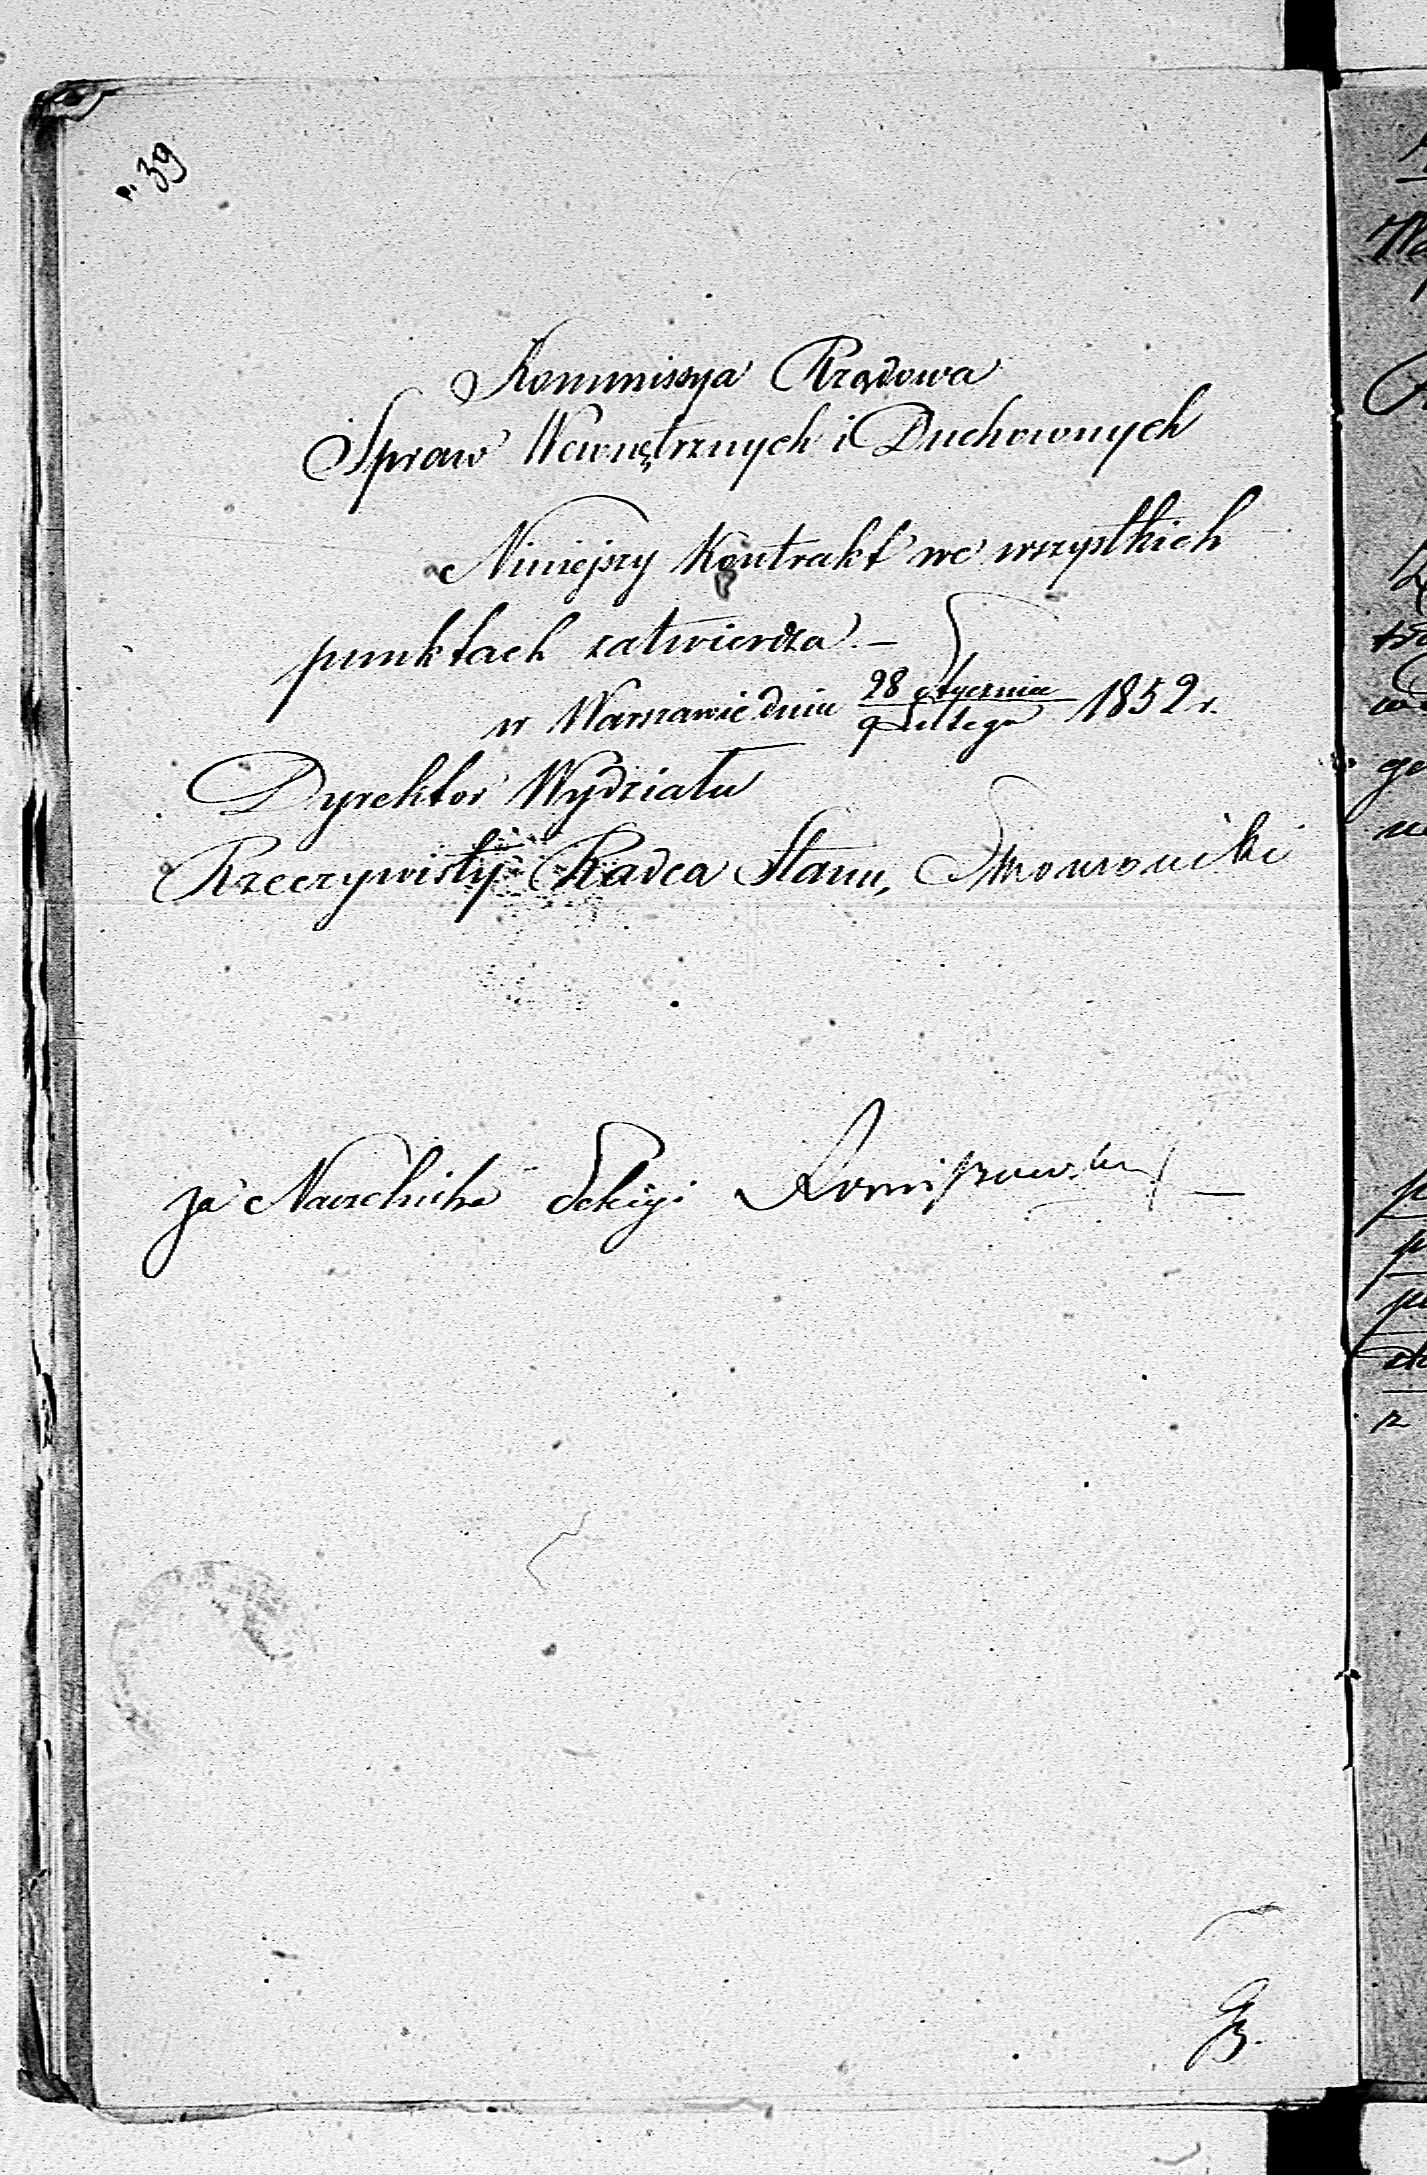 n. 39
Kommissya Rządowa
Spraw Wewnętrznych i Duchownych
Niniejszy Kontrakt we wszystkich
punktach zatwierdza. –
w Warszawie dnia 28 Stycznia / 9 Lutego 1852 r.
Dyrektor Wydziału
Rzeczywisty Radca Stanu,
Za Naczelnika Sekcyi